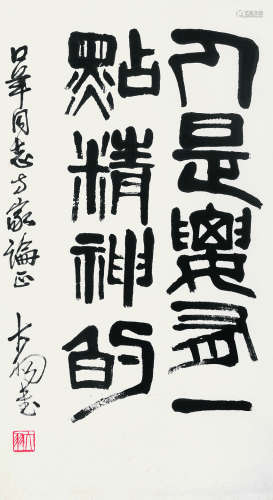 人是要有一
點精神的
同志方家論正
大羽書